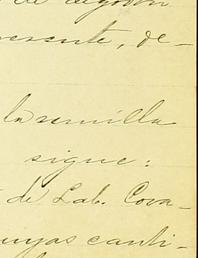 de algodon
presente, de-
la semilla
sigue:
de Lab. Cova-
cuyas canti-